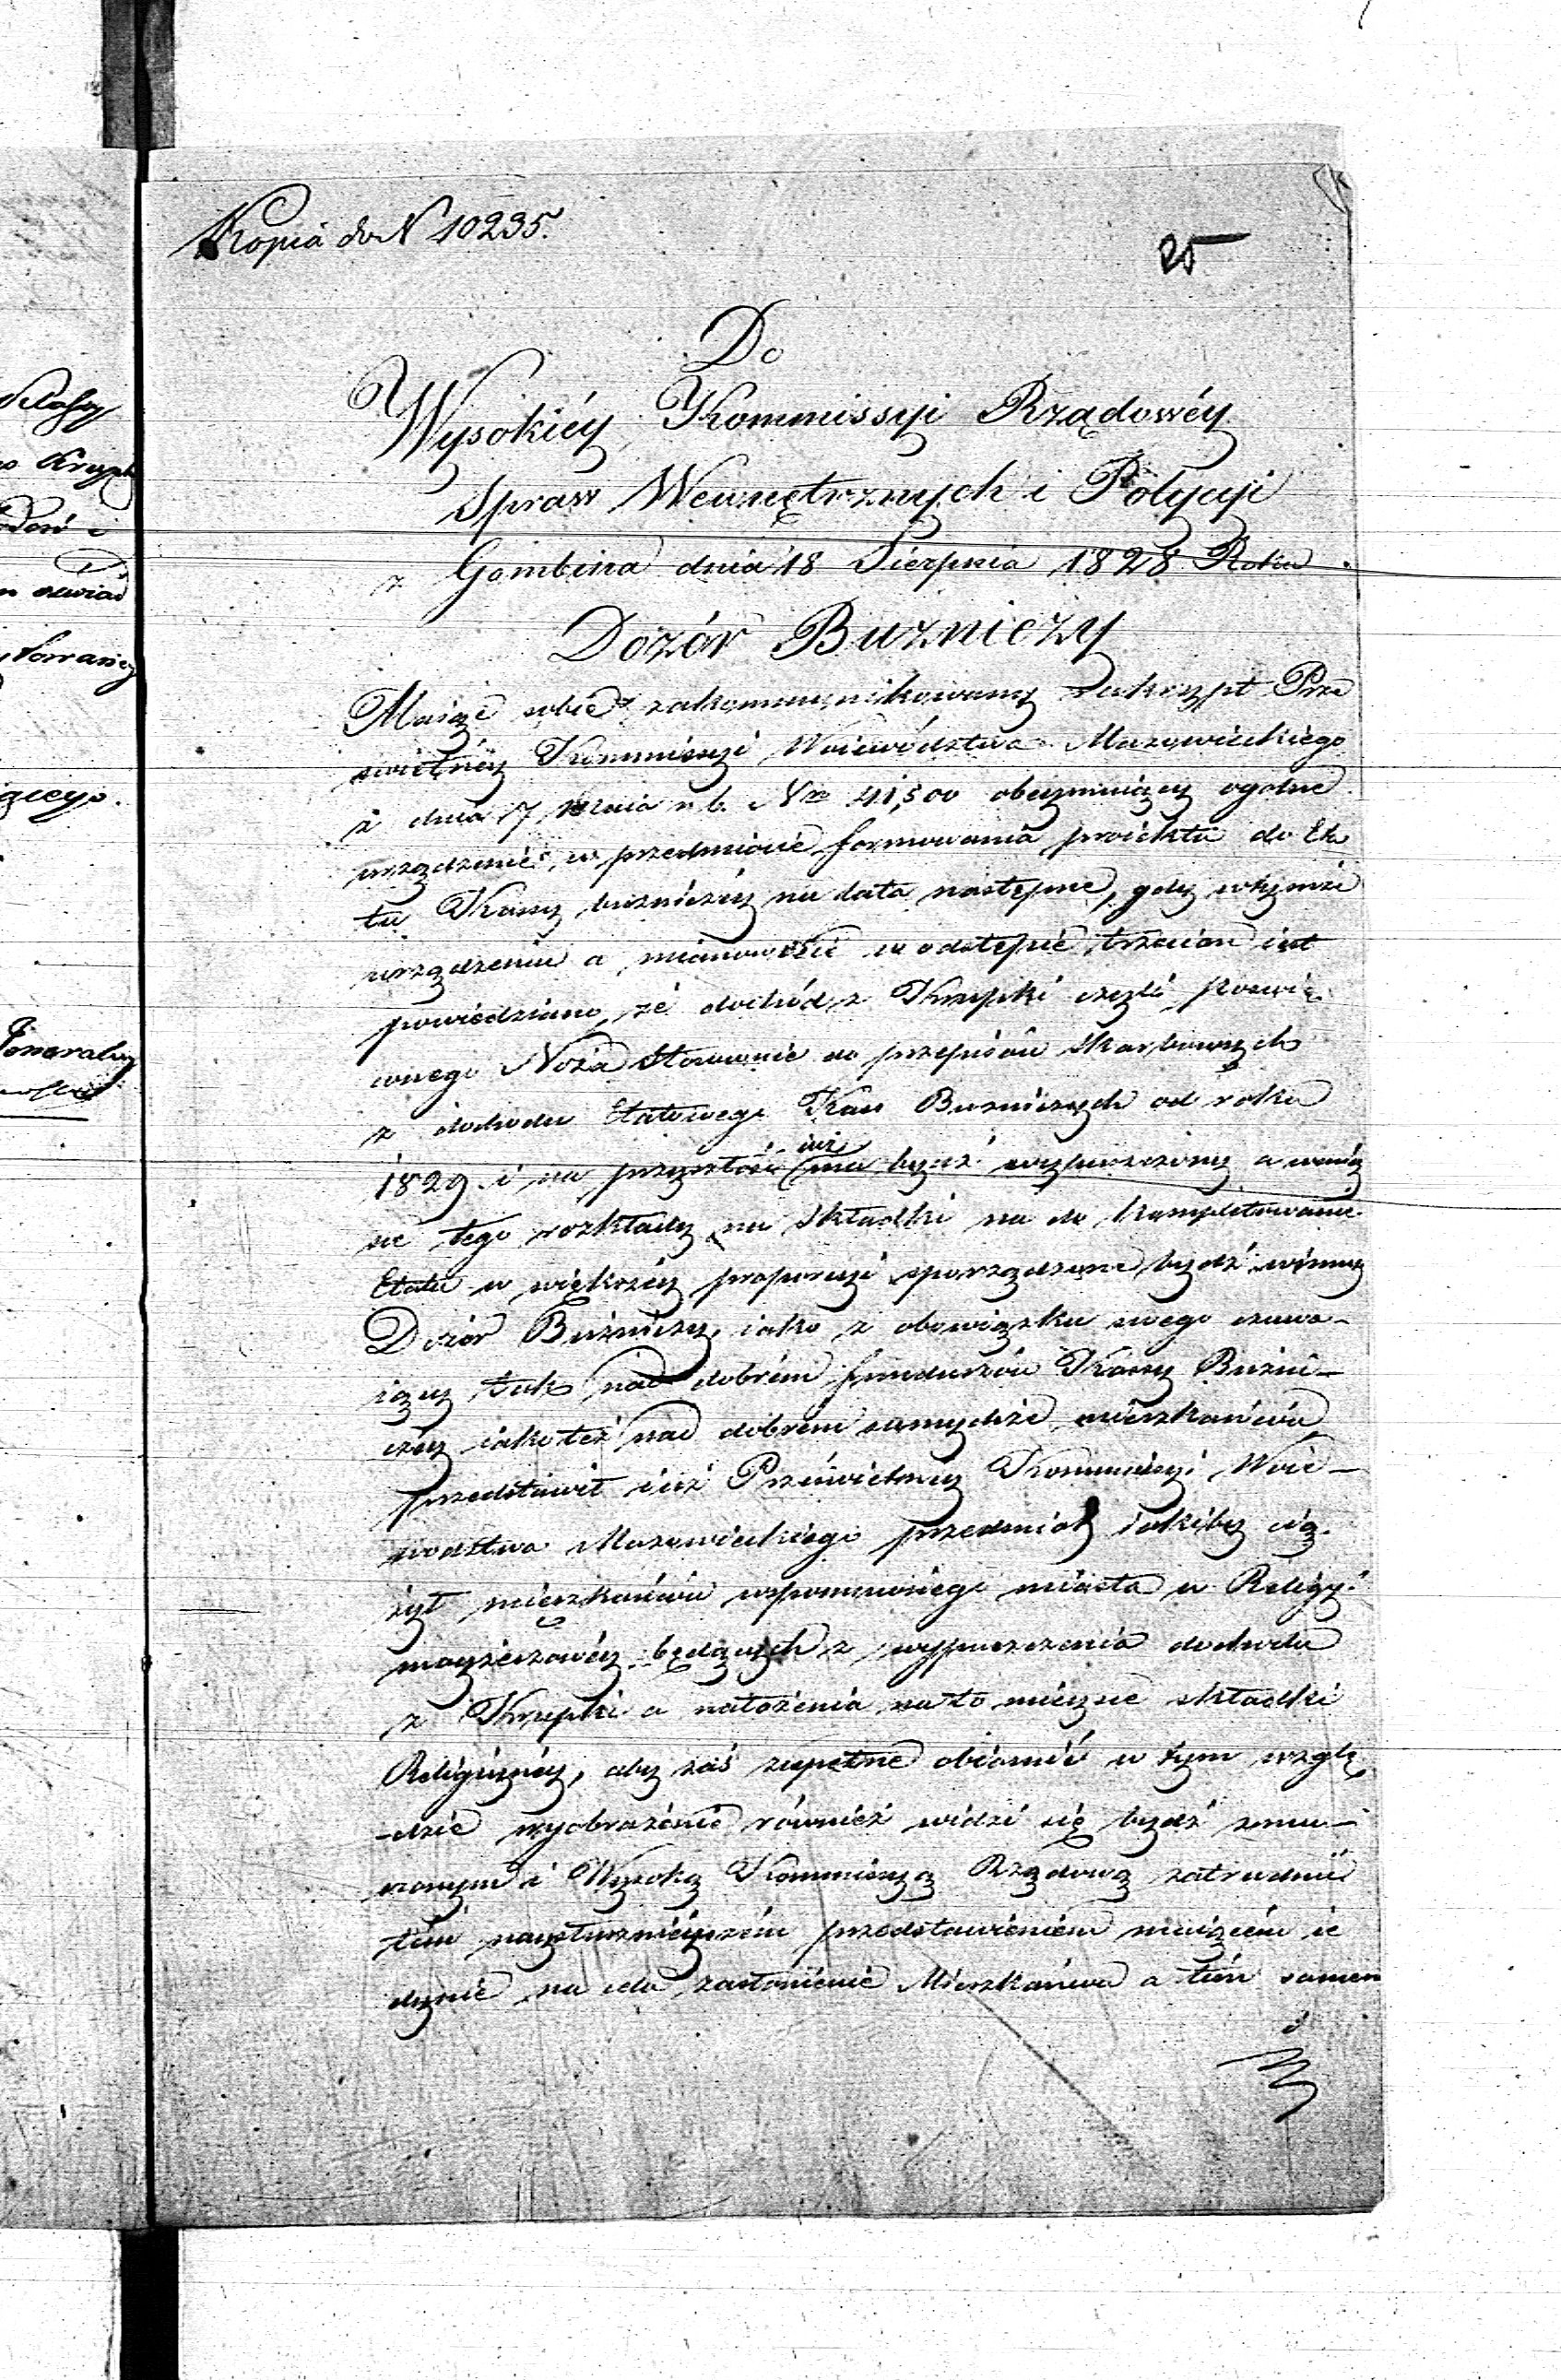 Kopia do N 10235.
25
Do
Wysokiéy Kommissyi Rządowéy
Spraw Wewnętrznych i Policyi
z Gombina dnia 18 Sierpnia 1828 Roku
Dozór Buzniczy
Maiąc sobie zakommunikowany Reskrypt Prze
świetnéy Kommissyi Woiewództwa Mazowieckiego
z dnia 7 Maia r. b. Nro 41,500 obeymuiący ogólne
urządzenie, w przedmiocie formowania proiektu do Eta
tu Kassy buzniczéy na lata następne, gdy w tymże
urządzeniu a mianowicie w odstępie trzecim iest
powiedziano, że dochód z Krupki czyli koszer
wnego Noża stosownie do przepisów Skarbowych
z dochodu Etatowego Kass Buzniczych od roku
1829. i na przyszłość iuż ma bydź wypuszczony a w miey
sce tego rozkłady na składki na do kompletowanie
Etatu w większéy proporcyi sporządzone bydź winny
Dozór Buzniczy, iako z obowiązku swego czuwa-
iący tak nad dobrem funduszów Kassy Buzni-
czéy iako też nad dobrem samychże mieszkańców
przedstawił iuż Prześwietnéy Kommissyi Woie-
wodztwa Mazowieckiego przedmiot iakiby cią
żył mieszkańców wspomnionego miasta w Religyi
moyżeszowéy będących z wypuszczenia dochodu
z Krupki a nałożenia na to mieysce składki
Religiynéy, aby zaś zupełne obiaśnić w tym wzglę
-dzie wyobrażenie również widzi się bydź zmu-
szonym i Wysoką Kommissyą Rządową zatrudnić
tém naysłuszniéyszém przedstawieniem maiącém ie
dynie na celu zasłonienie Mieszkańców a tém samem